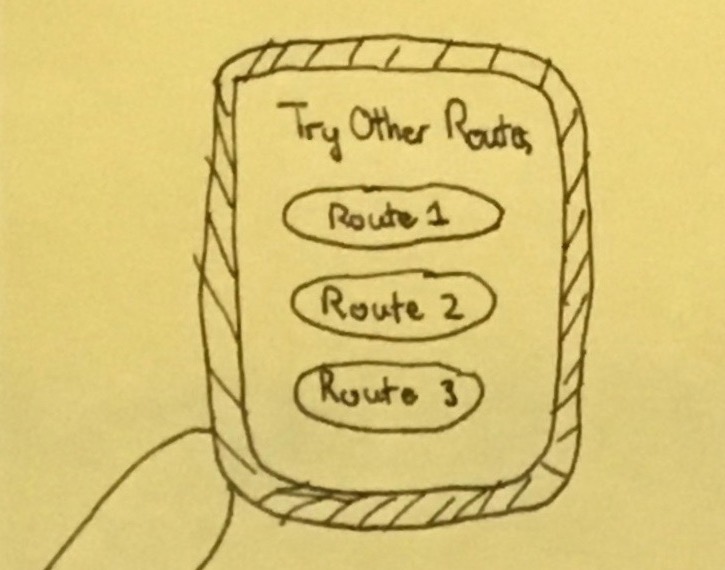 Try Other Routes
Route 1
Route 2
Route 3